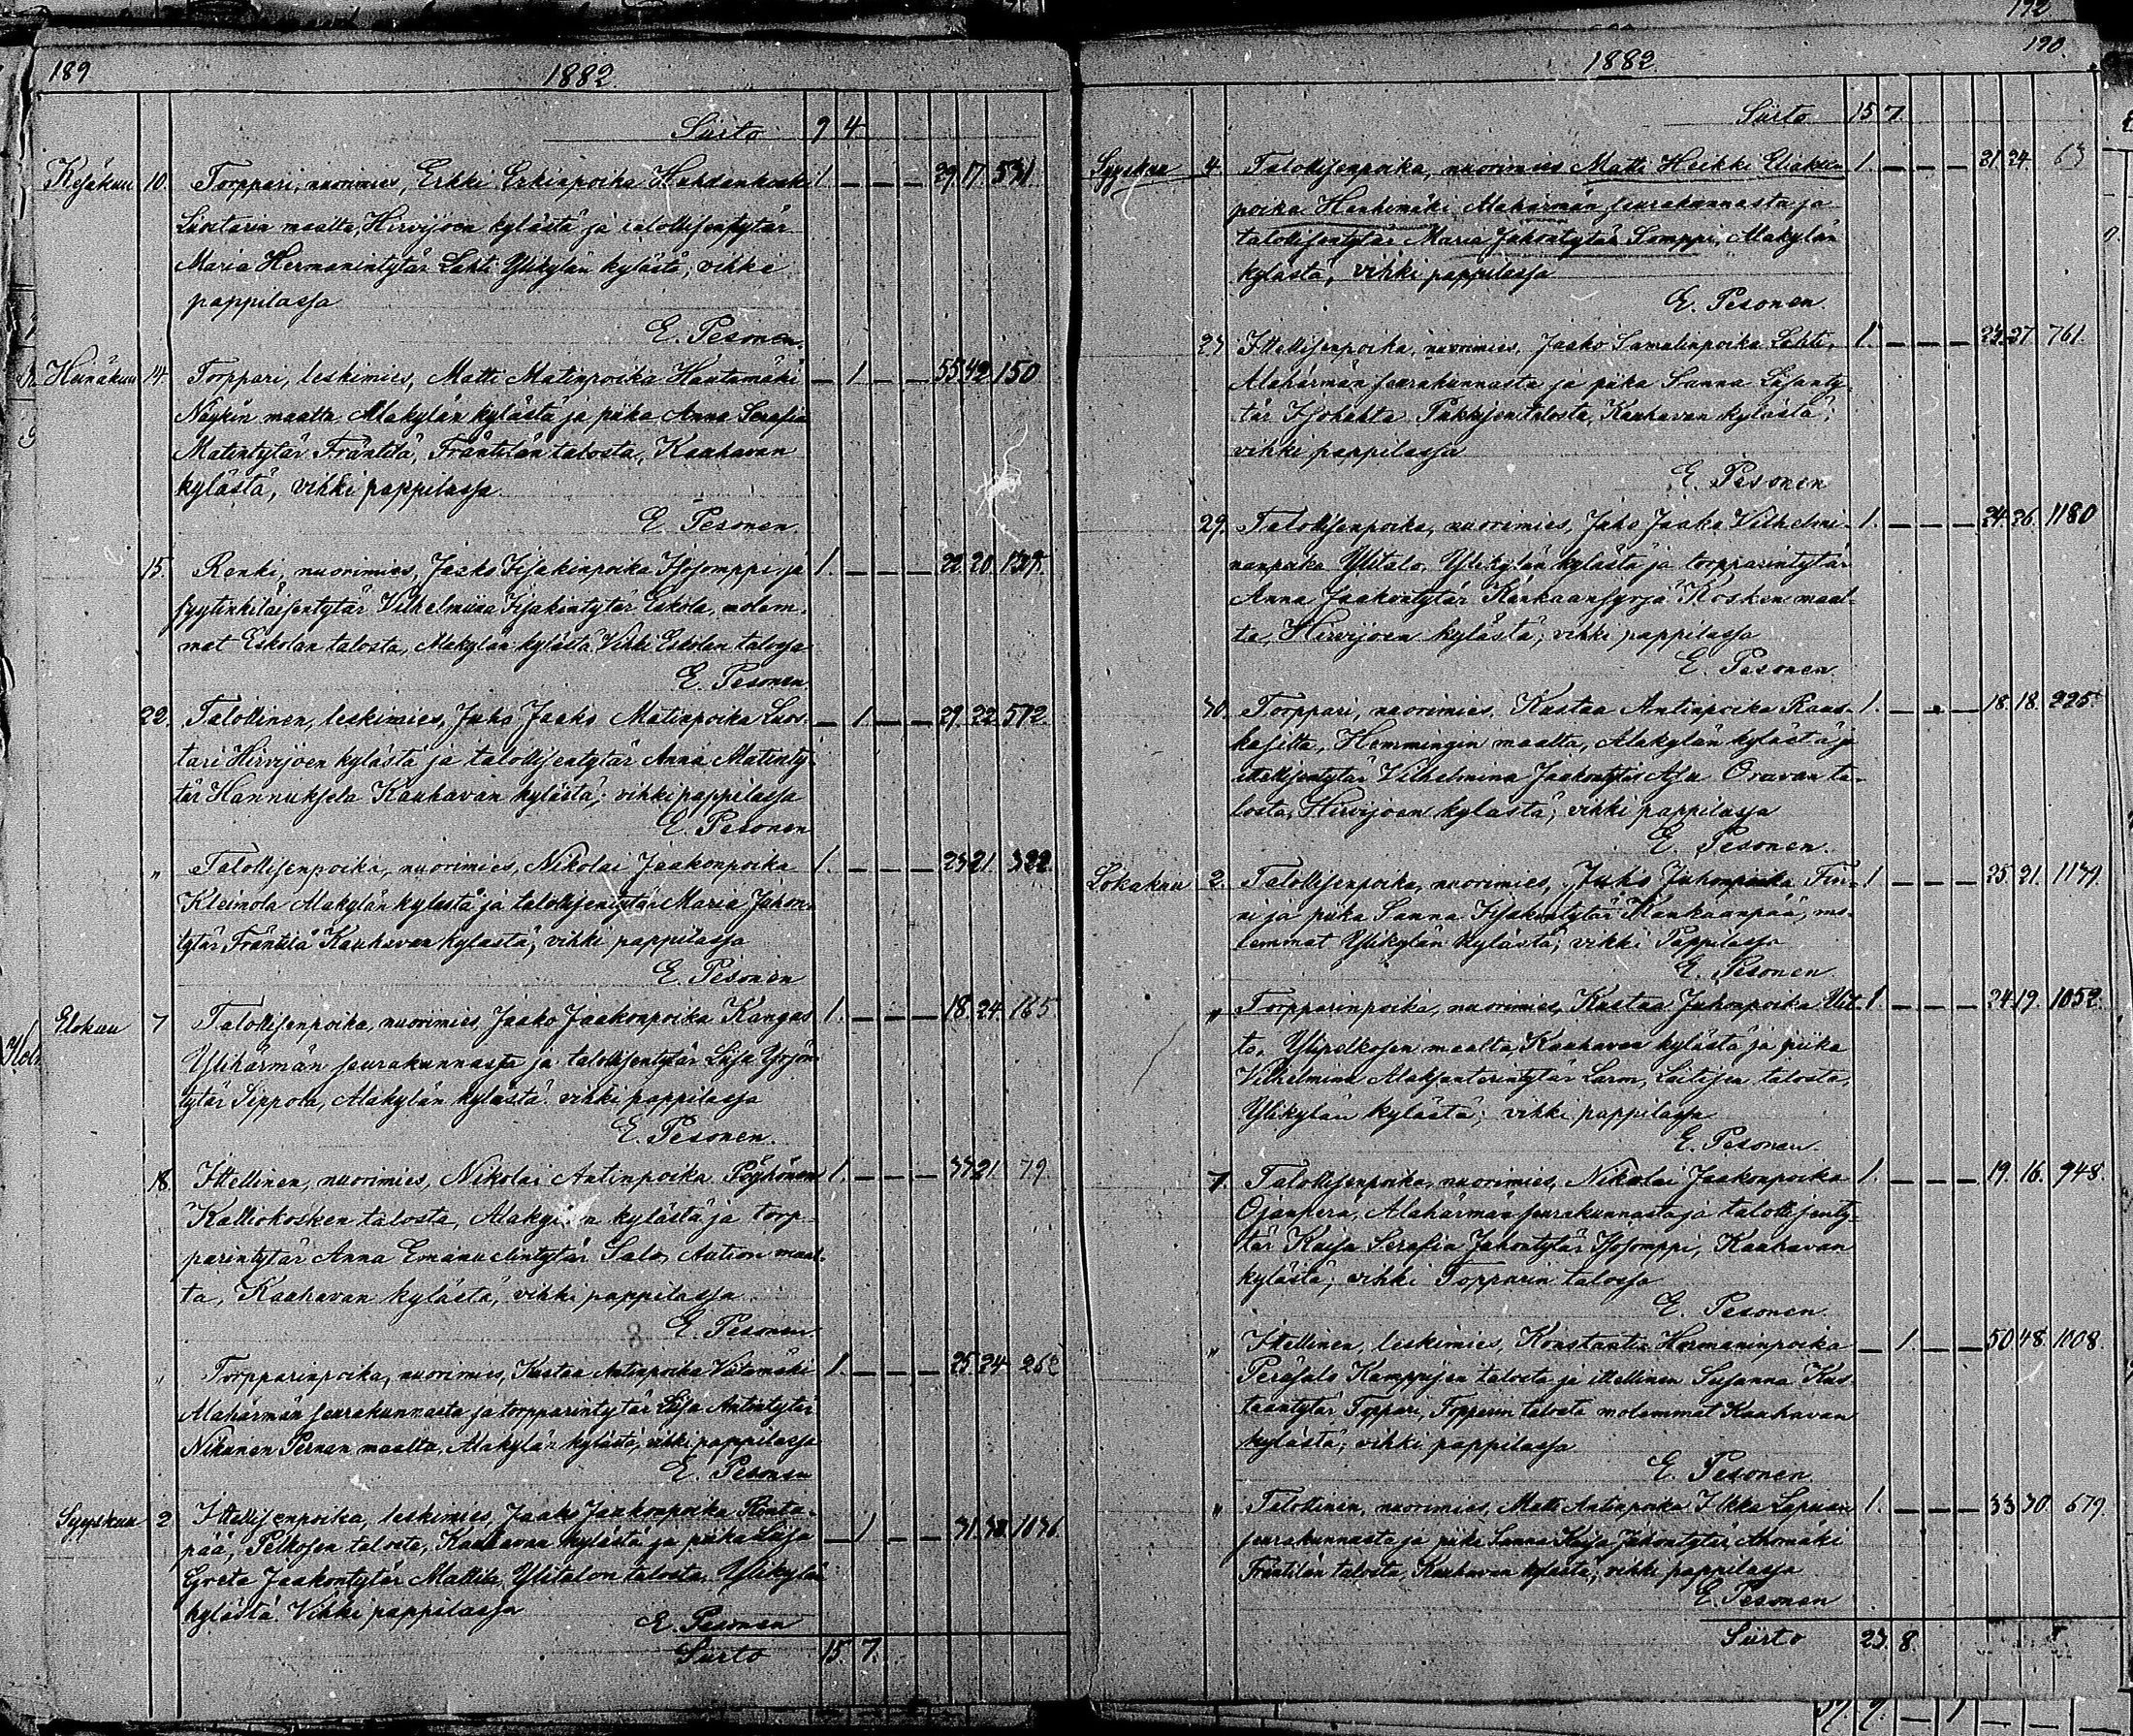 189
1882.
Siirto 9 4
Kesäkuu 10. Torppari, nuorimies, Erkki Erkinpoika Hahdenkoski 1. — — — 29. 17. 531.
Luostarin maalta, Hirvijoen kylästä ja talollisentytär
Maria Hermanintytär Lahti Ylikylän kylästä; vihki
pappilassa
E. Pesonen.
Heinäkuu 14. Torppari, leskimies, Matti Matinpoika Hautamäki — 1 — — 55. 42. 150
Näykin maalta Alakylän kylästä ja piika Anna Serafia
Matintytär Fräntilä, Fräntilän talosta, Kauhavan
kylästä, vihki pappilassa
E. Pesonen.
15. Renki, nuorimies, Jaako Iisakinpoika Isosomppi ja 1. — — — 22. 20.
syytinkiläisentytär Vilhelmiina Iisakintytär Eskola, molem-
mat Eskolan talosta, Alakylän kylästä. Vihki Eskolan talossa
E. Pesonen.
22. Talollinen, leskimies, Juho Jaako Matinpoika Luos- — 1 — — 29. 22. 572
tari Hirvijoen kylästä ja talollisentytär Anna Matinty-
tär Hannuksela Kauhavan kylästä; vihki pappilassa
E. Pesonen
„ Talollisenpoika, nuorimies, Nikolai Jaakonpoika 1. — — — 23 21. 322.
Kleimola Alakylän kylästä ja talollisentytär Maria Juhon-
tytär Fräntilä Kauhavan kylästä; vihki pappilassa
E. Pesonen
Elokuu 7 Talollisenpoika, nuorimies, Jaako Jaakonpoika Kangas 1. — — — 18. 24. 165.
Ylihärmän seurakunnassa ja talollisentytär Liisa Yrjön-
tytär Sippola, Alakylän kylästä. vihki pappilassa
E. Pesonen.
18. Itellinen, nuorimies, Nikolai Antinpoika Pöyhönen 1. — — — 33 21. 79.
Kalliokosken talosta, Alakylän kylästä ja torp-
parintytär Anna Emanuelintytär Salo, Aution maal-
ta, Kauhavan kylästä, vihki pappilassa
8 E. Pesonen.
„ Torpparinpoika, nuorimies, Kustaa Antinpoika Viitamäki 1. — — — 25. 24.
Alahärmän seurakunnasta ja torpparintytär Liisa Antintytär
Nikunen Pernan maalta, Alakylän kylästä, vihki pappilassa
E. Pesonen
Syyskuu 2 Itellisenpoika, leskimies, Jaako Jaakonpoika Rinta-
pää, Pelkosen talosta, Kauhavan kylästä ja piika Liisa — 1 — —
Greta Jaakontytär Mattila, Ylitalon talosta, Ylikylän
kylästä. Vihki pappilassa
E. Pesonen
Siirto 15. 7.
192
190.
1882.
Siirto 15 7
Syyskuu 4. Talollisenpoika, nuorimies Matti Heikki Eliaksen 1. — — — 21. 24. 63
poika Hanhimäki Alahärmän seurakunnasta ja
talollisentytär Maria Juhontytär Somppi, Alakylän
kylästä, vihki pappilassa
E. Pesonen.
23 Itellisenpoika, nuorimies, Jaako Samulinpoika Lahti, 1. — — — 23. 27. 761.
Alahärmän seurakunnasta ja piika Sanna Liisanty-
tär Isohahto Pukkisen talosta, Kauhavan kylästä;
vihki pappilassa
E. Pesonen
29. Talollisenpoika, nuorimies, Juho Jaako Vilhelmi- 1. — — — 24. 26. 1180
nanpoika Ylitalo, Ylikylän kylästä ja torpparintytär
Anna Jaakontytär Kankaansyrjä Kosken maal-
ta, Hirvijoen kylästä, vihki pappilassa
E. Pesonen.
30. Torppari, nuorimies, Kustaa Antinpoika Raus- 1. — — — 18. 18. 225.
kasilta, Hemmingin maalta, Alakylän kylästä ja
itellisentytär Vilhelmina Jaakontytär Asu Oravan ta-
losta, Hirvijoen kylästä, vihki pappilassa
E. Pesonen.
Lokakuu 2. Talollisenpoika, nuorimies, Juho Juhonpoika Fin- 1 — — — 25. 21. 1139.
ni ja piika Sanna Iisakintytär Kankaanpää, mo-
lemmat Ylikylän kylästä; vihki Pappilassa
E. Pesonen.
„ Torpparinpoika, nuorimies, Kustaa Juhonpoika Ylit- 1. — — — 24. 19. 1052.
to, Ylipelkosen maalta, Kauhavan kylästä ja piika
Vilhelmina Aleksanterintytär Larm, Laitisen talosta,
Ylikylän kylästä; vihki pappilassa
E. Pesonen.
7. Talollisenpoika, nuorimies, Nikolai Jaakonpoika 1. — — — 19. 16. 948.
Ojanperä, Alahärmän seurakunnasta ja talollisenty-
tär Kaisa Serafia Juhontytär Isosomppi, Kauhavan
kylästä; vihki Topparin talossa
E. Pesonen.
„ Itellinen, leskimies, Konstantin Hermaninpoika — 1. — — 50. 48. 1008.
Peräsalo Kamppisen talosta ja itellinen Susanna Kus-
taantytär Toppari, Topparin talosta molemmat Kauhavan
kylästä; vihki pappilassa
E. Pesonen.
„ Talollinen, nuorimies, Matti Antinpoika Ilkka Lapuan 1. — — — 33 30. 679.
seurakunnasta ja piika Sanna Kaisa Juhontytär Ahomäki
Fräntilän talosta, Kauhavan kylästä; vihki pappilassa
E. Pesonen
Siirto 23. 8.